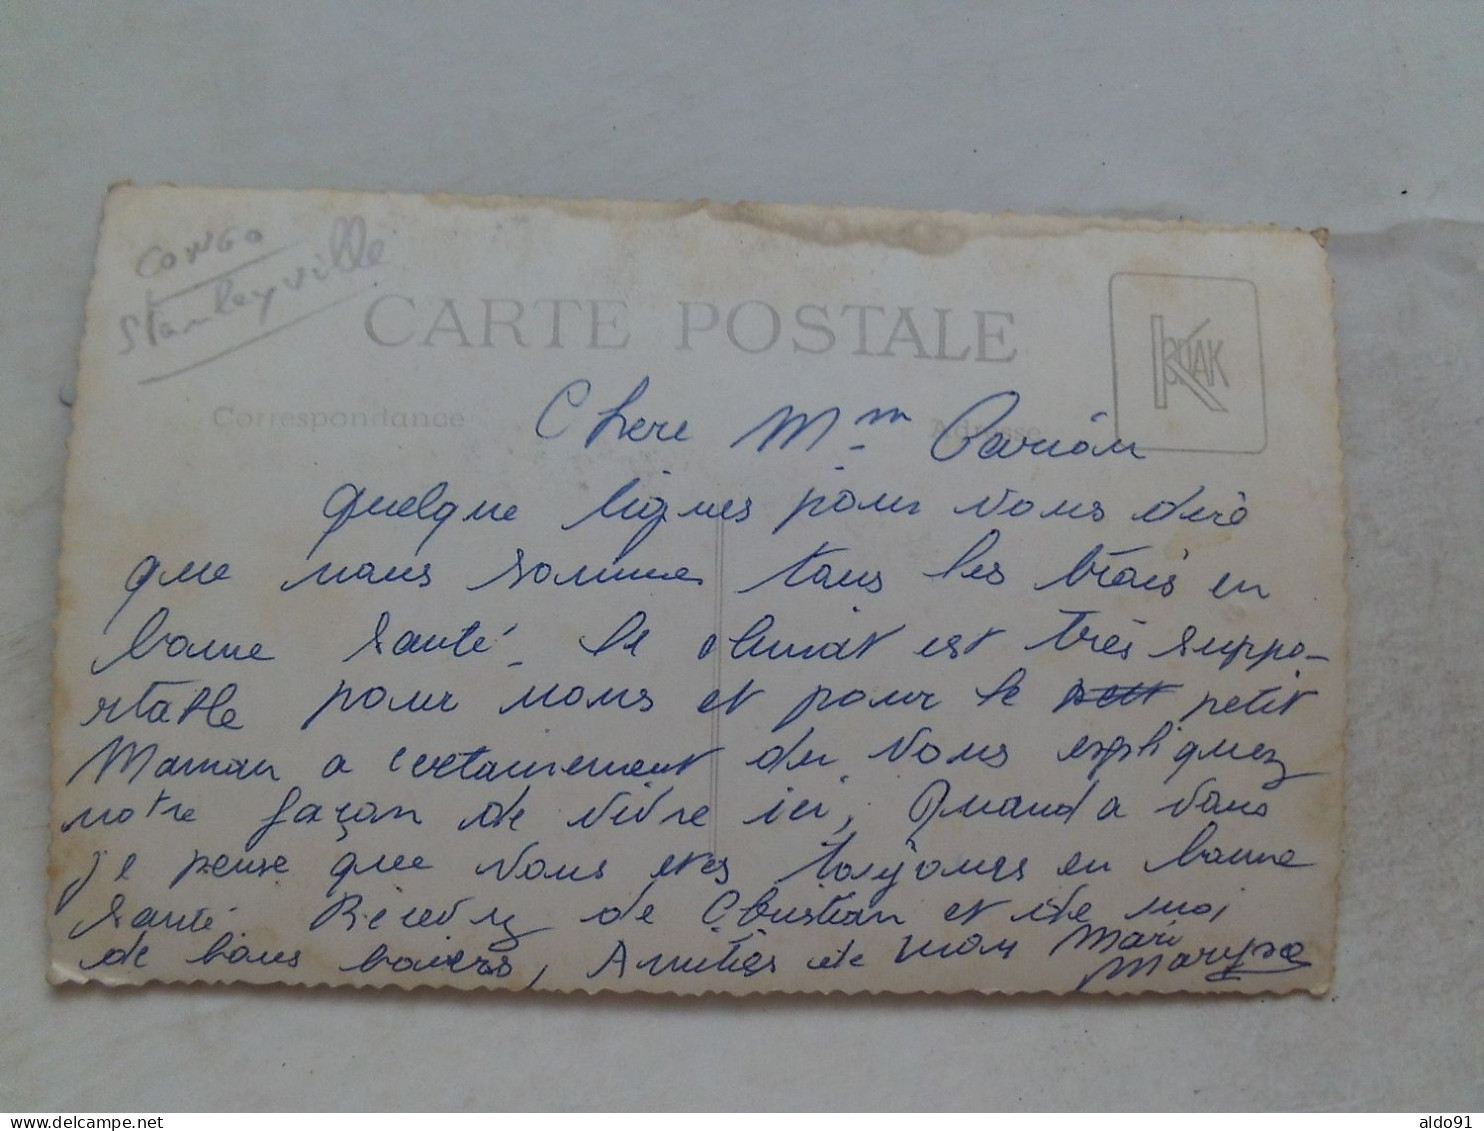 CONGO
Stanleyville
CARTE POSTALE
KODAK
Correspondance
Adresse
Chere Mm
quelque lignes pour vous dire
que nous sommes tous les trois en
bonne santé. le climat est très suppo-
rtable pour nous et pour le petit
Maman a certainement du vous expliquez
notre façon de vivre ici, Quand a vous
j'e pense que vous etes toujours en bonne
santé Recevez de Christian et de moi
de bons baisers, Amitiés de mon Mari
aldo91